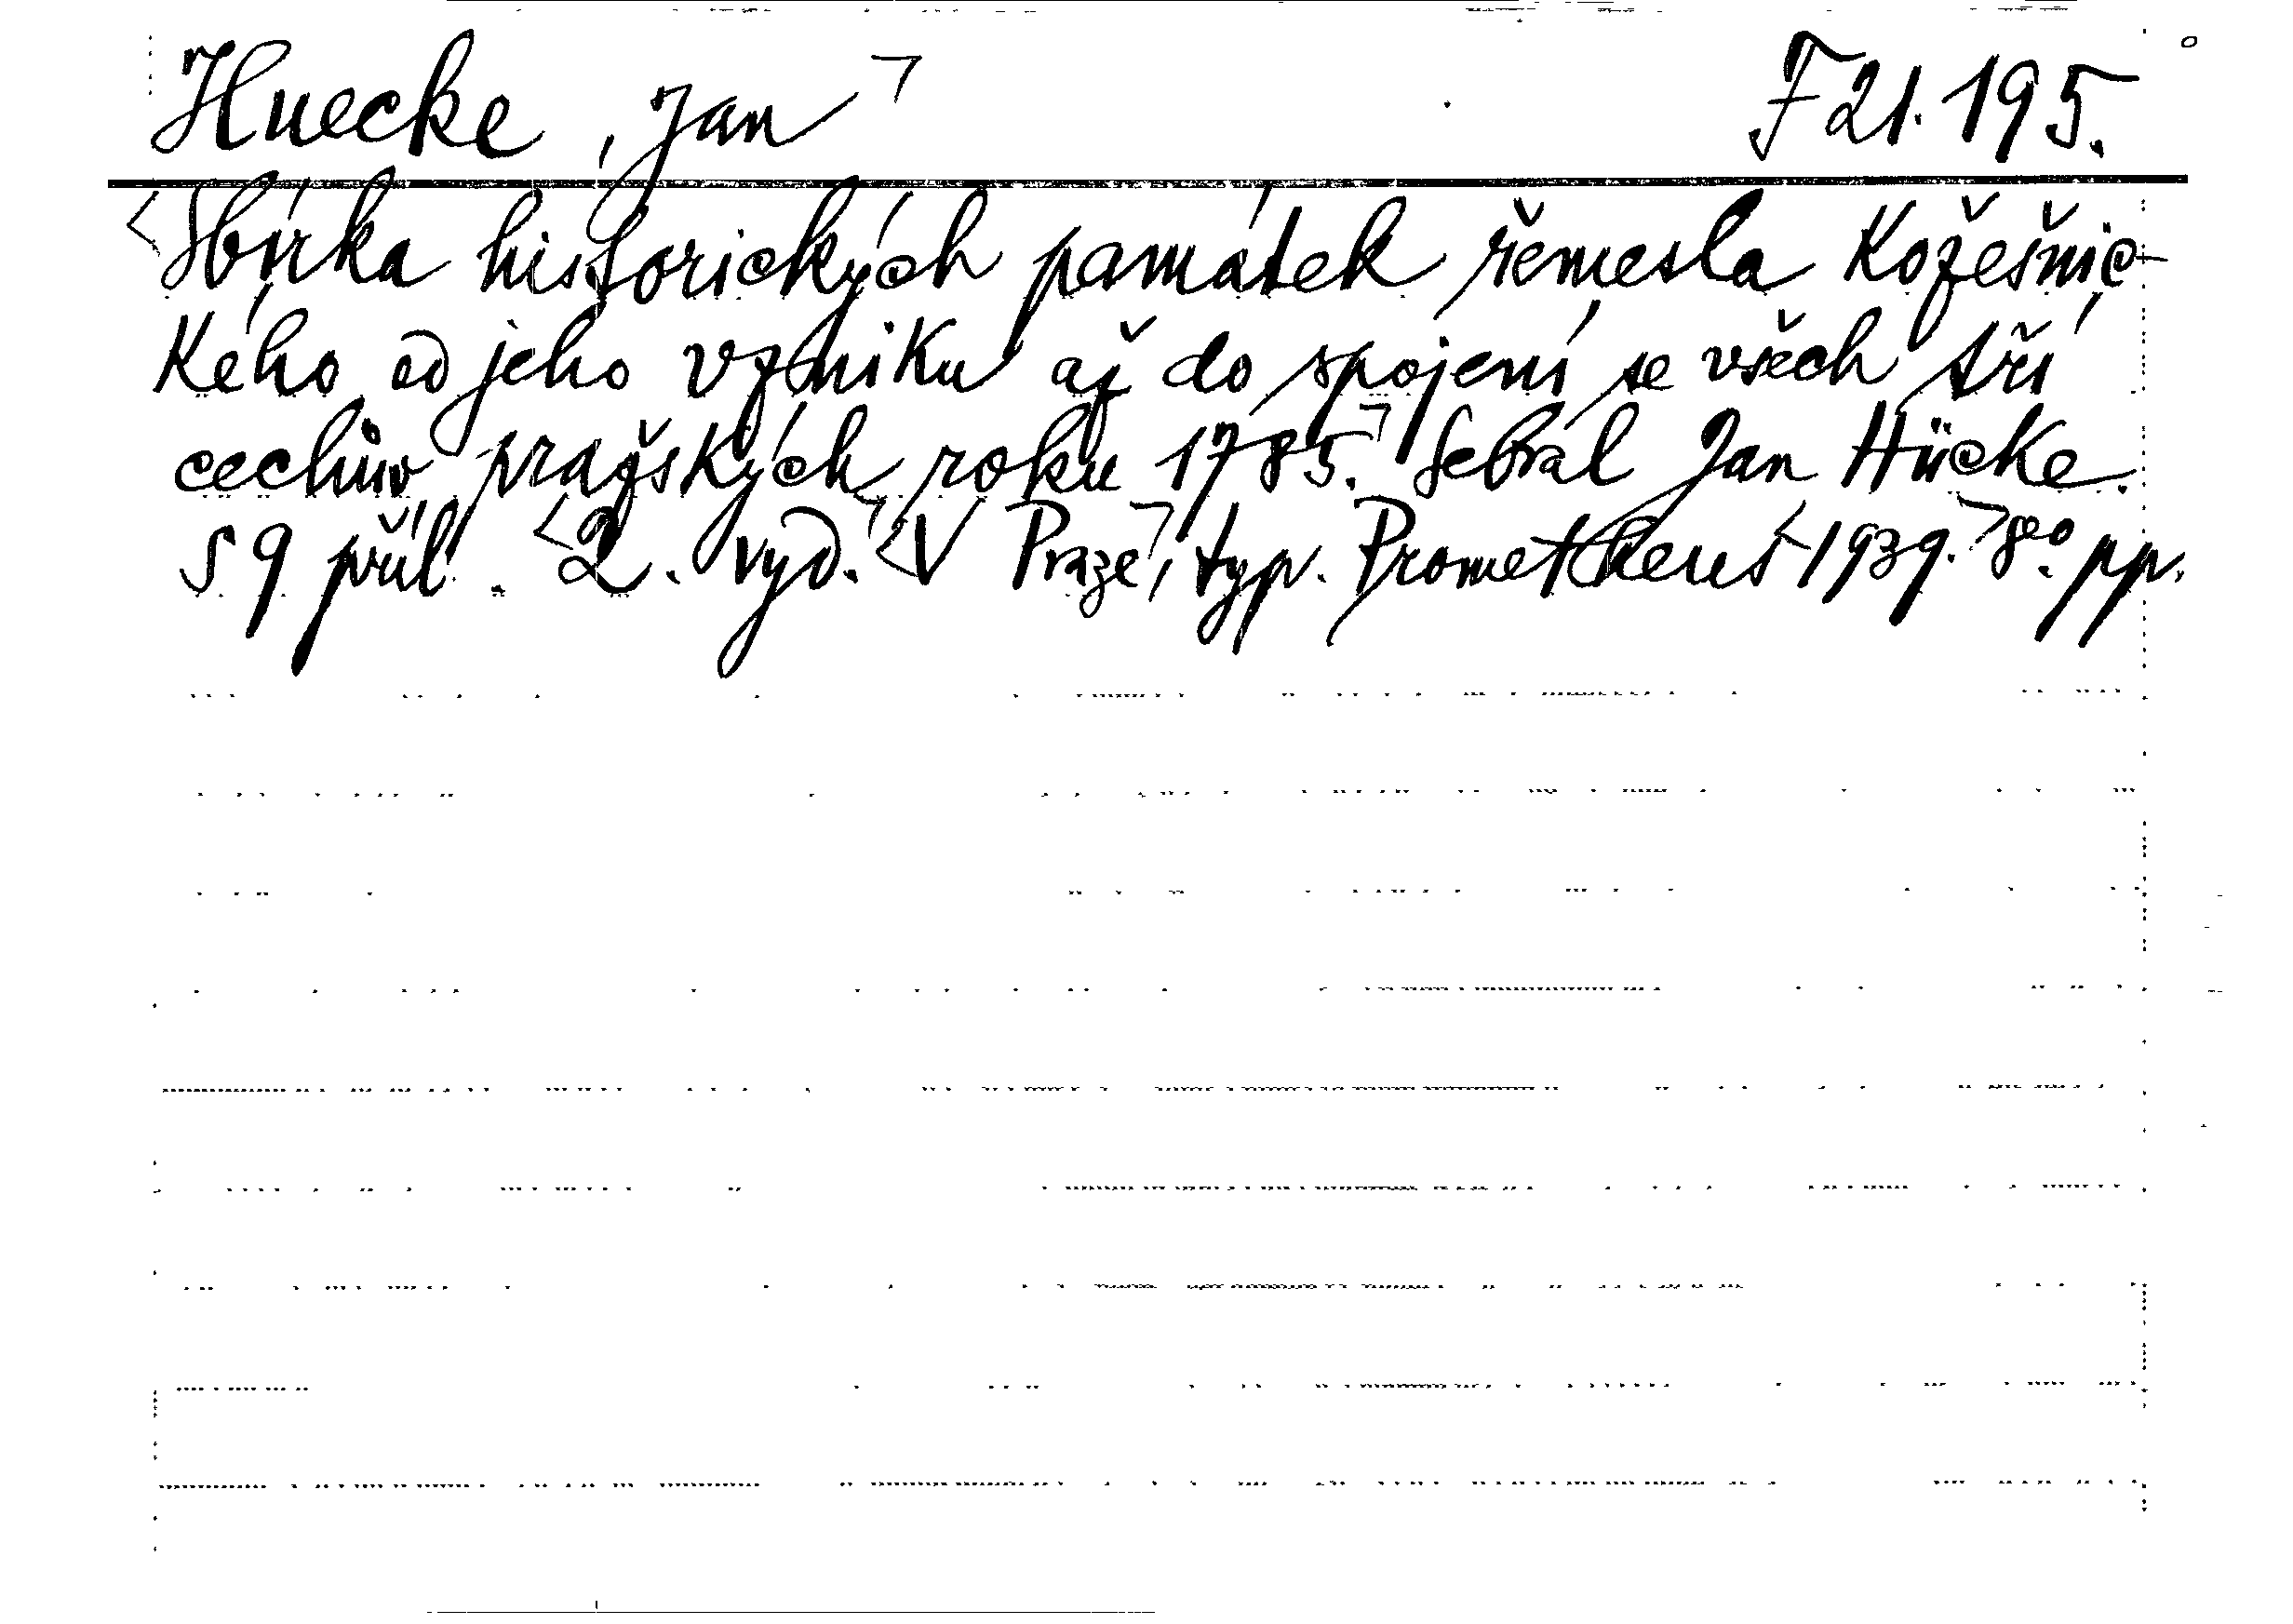 Huecke, Jan ㄱ F 21.195.
<Sbírka historických památek řemesla kožešnic-
kého od jeho vzniku až do spojení se všech tří
cechův pražských roku 1785.ㄱ Sebral Jan Hücke.
S 9 příl. <2. vyd.ㄱ <V Prazeㄱ, typ. Prometheus <1939.ㄱ 8°. pp.